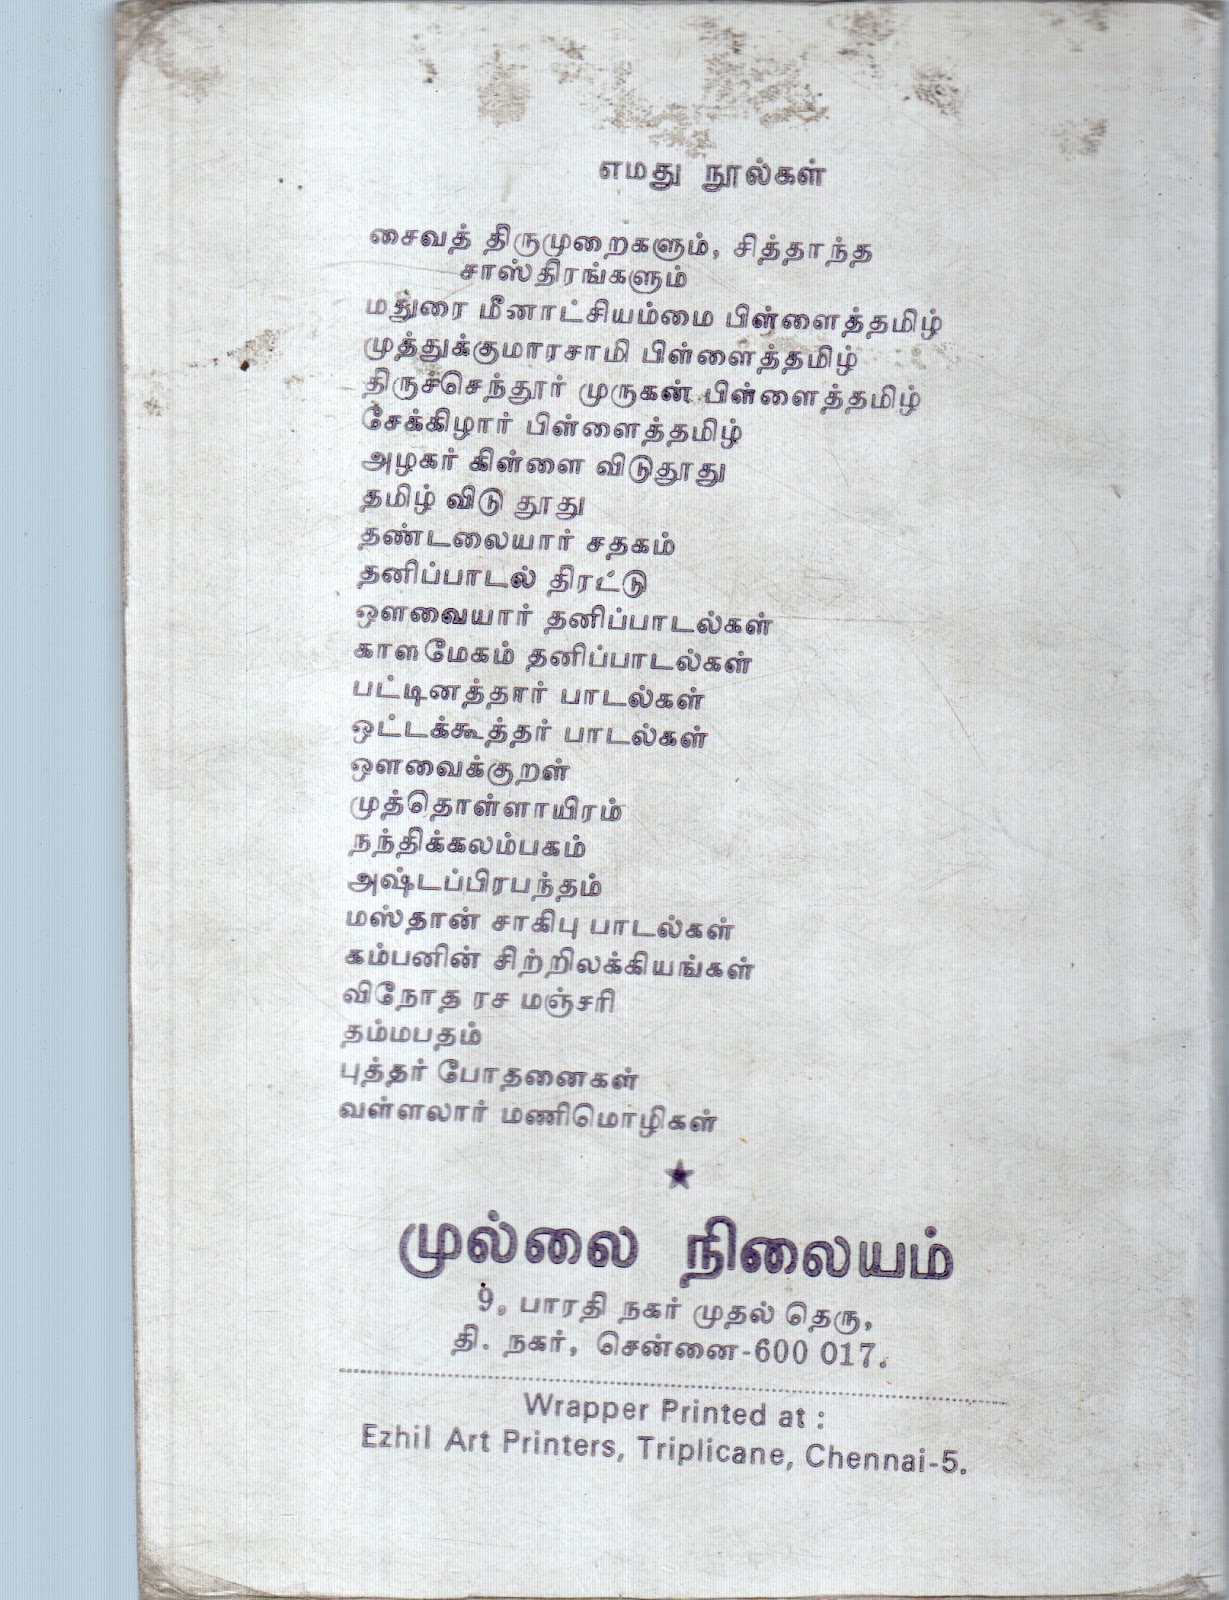 எமது நூல்கள்
சைவத் திருமுறைகளும், சித்தாந்த
சாஸ்திரங்களும்
மதுரை மீனாட்சியம்மை பிள்ளைத்தமிழ்
முத்துக்குமாரசாமி பிள்ளைத்தமிழ்
திருச்செந்தூர் முருகன் பிள்ளைத்தமிழ்
சேக்கிழார் பிள்ளைத்தமிழ்
அழகர் கிள்ளை விடுதூது
தமிழ் விடு தூது
தண்டலையார் சதகம்
தனிப்பாடல் திரட்டு
ஔவையார் தனிப்பாடல்கள்
காளமேகம் தனிப்பாடல்கள்
பட்டினத்தார் பாடல்கள்
ஒட்டக்கூத்தர் பாடல்கள்
ஔவைக்குறள்
முத்தொள்ளாயிரம்
நந்திக்கலம்பகம்
அஷ்டப்பிரபந்தம்
மஸ்தான் சாகிபு பாடல்கள்
கம்பனின் சிற்றிலக்கியங்கள்
விநோத ரச மஞ்சரி
தம்மபதம்
புத்தர் போதனைகள்
வள்ளலார் மணிமொழிகள்
முல்லை நிலையம்
9, பாரதி நகர் முதல் தெரு,
தி. நகர், சென்னை-600 017.
Wrapper Printed at :
Ezhil Art Printers, Triplicane, Chennai-5.